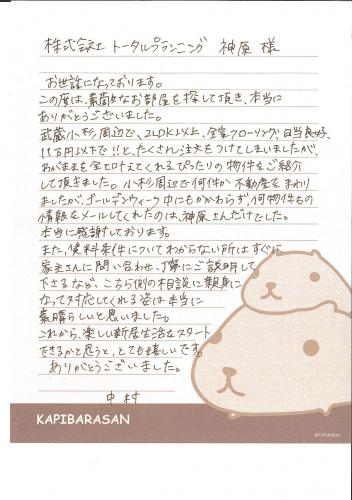 株式会社 トータルプランニング 神原 様
お世話になっております。
この度は、素敵なお部屋を探して頂き、本当に
ありがとうございました。
武蔵小杉周辺で、2LDK以上、全室フローリング、日当良好、
11万円以下で!!と、たくさん注文をつけてしまいましたが、
わがままを全て叶えてくれるぴったりの物件をご紹介
して頂きました。小杉周辺で何件か不動産をまわり
ましたが、ゴールデンウィーク中にもかかわらず、何物件もの
情報をメールしてくれたのは、神原さんだけでした。
本当に感謝しております。
また、賃料条件についてわからない所はすぐに
家主さんに問い合わせ、丁寧にご説明して
下さるなど、こちら側の相談に親身に
なって対応してくれる姿は本当に
素晴らしいと思いました。
これから、楽しい新居生活をスタート
できるかと思うと、とても嬉しいです。
ありがとうございました。
中村
KAPIBARASAN